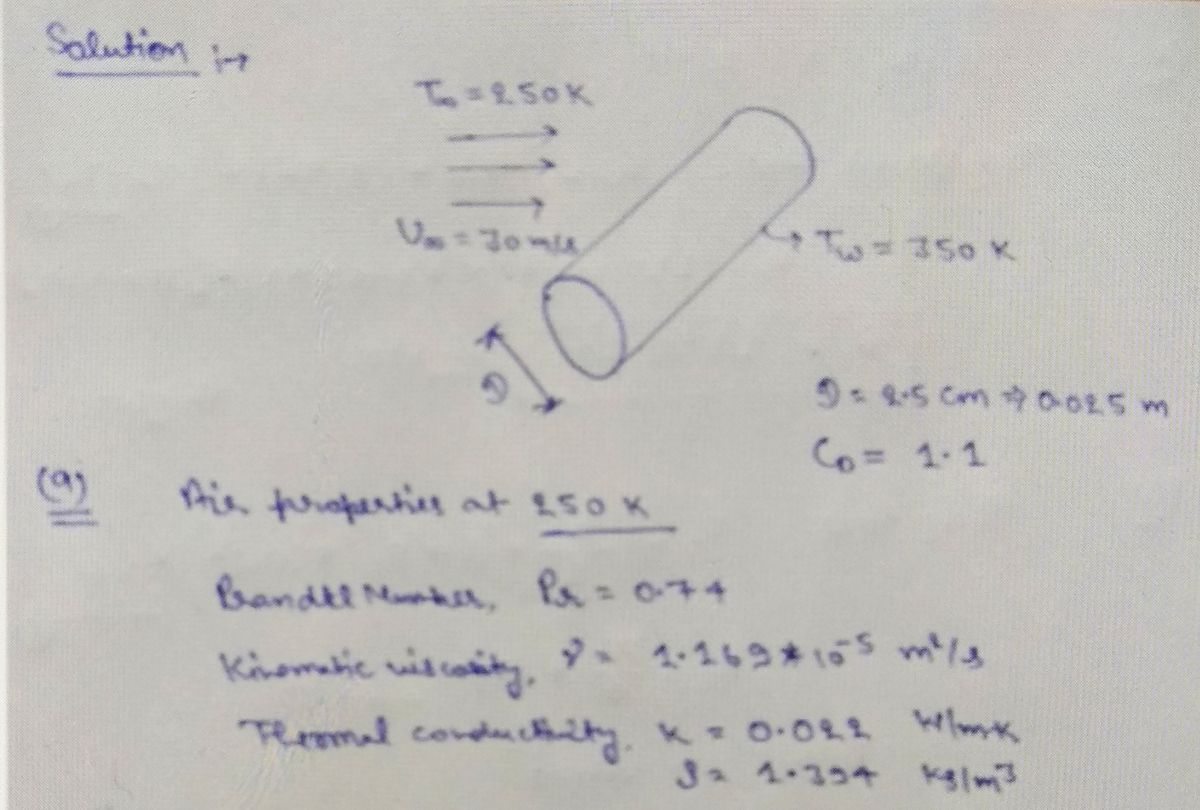 Solution :→
T∞ = 250 K
U∞ = 30 m/s
→ Tw = 350 K
D
D = 2.5 cm ⇒ 0.025 m
CD = 1.1
(a) Air properties at 250 K
Prandtl Number, Pr = 0.74
Kinematic viscosity, ν = 1.169 * 10⁻⁵ m²/s
Thermal conductivity, K = 0.022 W/mK
ρ = 1.394 kg/m³